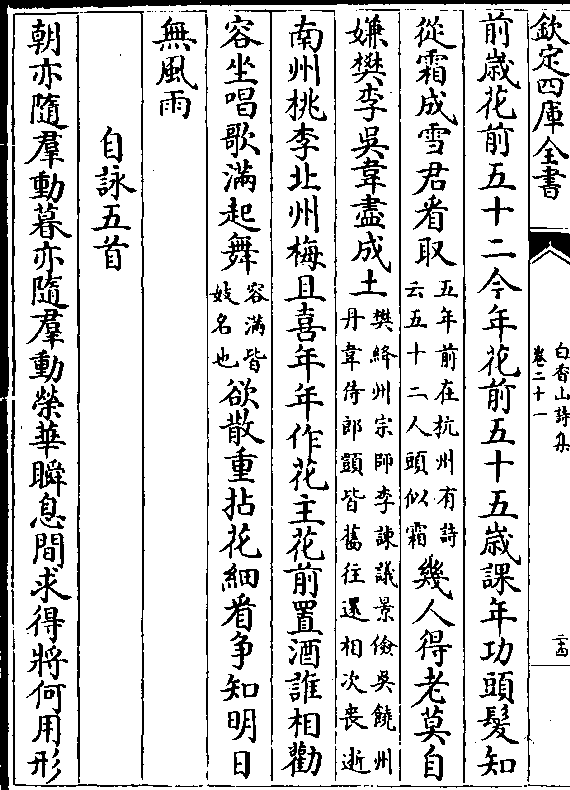 欽定四庫全書
白香山詩集
卷二十一
前歲花前五十二今年花前五十五歲課年功頭髮知
從霜成雪君看取五年前在杭州有詩云五十二人頭似霜幾人得老莫自
嫌樊李吳韋盡成土樊絳州宗師李諫議景儉吳饒州丹韋侍郎顗皆舊往還相次喪逝
南州桃李北州梅且喜年年作花主花前置酒誰相勸
容坐唱歌滿起舞容滿皆妓名也欲散重拈花細看争知明日
無風雨
自詠五首
朝亦隨羣動暮亦隨羣動榮華瞬息間求得將何用形